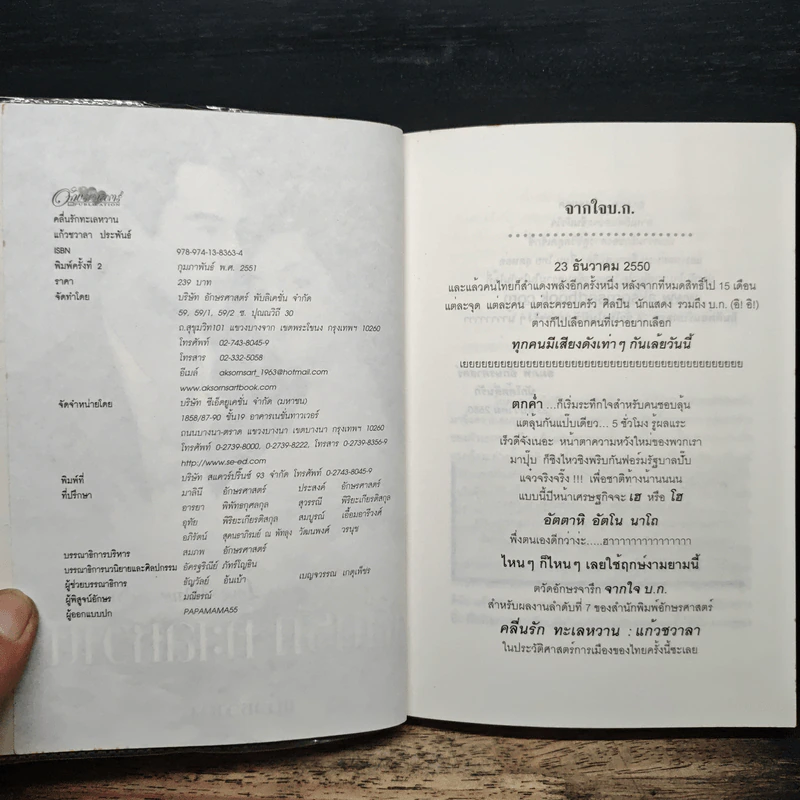 คลื่นรักทะเลหวาน
แก้วชวาลา ประพันธ์
ISBN 978-974-13-8363-4
พิมพ์ครั้งที่ 2 กุมภาพันธ์ พ.ศ. 2551
ราคา 239 บาท
จัดทำโดย บริษัท อักษรศาสตร์ พับลิเคชั่น จำกัด
59, 59/1, 59/2 ซ. ปุณณวิถี 30
ถ.สุขุมวิท101 แขวงบางจาก เขตพระโขนง กรุงเทพฯ 10260
โทรศัพท์ 02-743-8045-9
โทรสาร 02-332-5058
อีเมล์ aksornsart_1963@hotmail.com
www.aksornsartbook.com
จัดจำหน่ายโดย บริษัท ซีเอ็ดยูเคชั่น จำกัด (มหาชน)
1858/87-90 ชั้น19 อาคารเนชั่นทาวเวอร์
ถนนบางนา-ตราด แขวงบางนา เขตบางนา กรุงเทพฯ 10260
โทรศัพท์ 0-2739-8000, 0-2739-8222, โทรสาร 0-2739-8356-9
http://www.se-ed.com
พิมพ์ที่ บริษัท สแควร์ปริ๊นซ์ 93 จำกัด โทรศัพท์ 0-2743-8045-9
ที่ปรึกษา มาลินี อักษรศาสตร์ ประสงค์ อักษรศาสตร์
อารยา พิพัทธกุศลกุล สุวรรณี พิริยะเกียรติสกุล
อุทัย พิริยะเกียรติสกุล สมบูรณ์ เอื้อมอารีวงศ์
อภิรัตน์ สุคนธาภิรมย์ ณ พัทลุง วัฒนพงศ์ วรนุช
บรรณาธิการบริหาร สมภพ อักษรศาสตร์
บรรณาธิการนวนิยายและศิลปกรรม อัครฐรินีย์ ภัทร์ไญอิน
ผู้ช่วยบรรณาธิการ ธัญวัลย์ อ้นเบ้า เบญจวรรณ เกตุเพ็ชร
ผู้พิสูจน์อักษร มณีธรณ์
ผู้ออกแบบปก PAPAMAMA55
จากใจบ.ก.
23 ธันวาคม 2550
และแล้วคนไทยก็สำแดงพลังอีกครั้งหนึ่ง หลังจากที่หมดสิทธิ์ไป 15 เดือน
แต่ละจุด แต่ละคน แต่ละครอบครัว ศิลปิน นักแสดง รวมถึง บ.ก. (อิ! อิ!)
ต่างก็ไปเลือกคนที่เราอยากเลือก
ทุกคนมีเสียงดังเท่าๆ กันเล้ยวันนี้
ตกค่ำ ...ก็เริ่มระทึกใจสำหรับคนชอบลุ้น
แต่ลุ้นกันแป๊บเดียว... 5 ชั่วโมง รู้ผลแระ
เร็วดีจังเนอะ หน้าตาความหวังใหม่ของพวกเรา
มาปุ๊บ ก็ชิงไหวชิงพริบกันฟอร์มรัฐบาลปั๊บ
แจ๋วจริงจริ๊ง !!! เพื่อชาติท้างน้านนนน
แบบนี้ปีหน้าเศรษฐกิจจะ เฮ หรือ โฮ
อัตตาหิ อัตโน นาโถ
พึ่งตนเองดีกว่าง่ะ.....ฮาาาาาาาาาาาาาาา
ไหนๆ ก็ไหนๆ เลยใช้ฤกษ์งามยามนี้
ตวัดอักษรจารึก จากใจ บ.ก.
สำหรับผลงานลำดับที่ 7 ของสำนักพิมพ์อักษรศาสตร์
คลื่นรัก ทะเลหวาน : แก้วชวาลา
ในประวัติศาสตร์การเมืองของไทยครั้งนี้ซะเลย